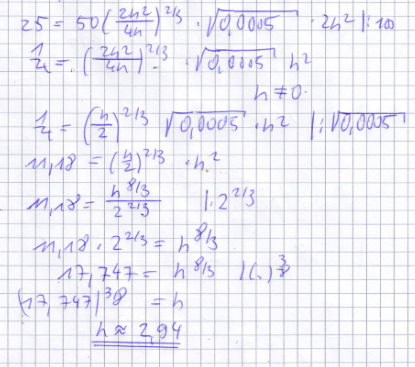 25 = 50(2h²/4h)^2/3 · √0,0005 · 2h² |:100
1/4 = (2h²/4h)^2/3 · √0,0005 h²
h ≠ 0
1/4 = (h/2)^2/3 √0,0005 · h² |:√0,0005
11,18 = (h/2)^2/3 · h²
11,18 = h^8/3 / 2^2/3 |· 2^2/3
11,18 · 2^2/3 = h^8/3
17,747 = h^8/3 |(.)^3/8
(17,747)^3/8 = h
h ≈ 2,94